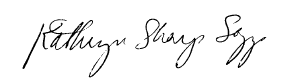 Kathryn Sharp